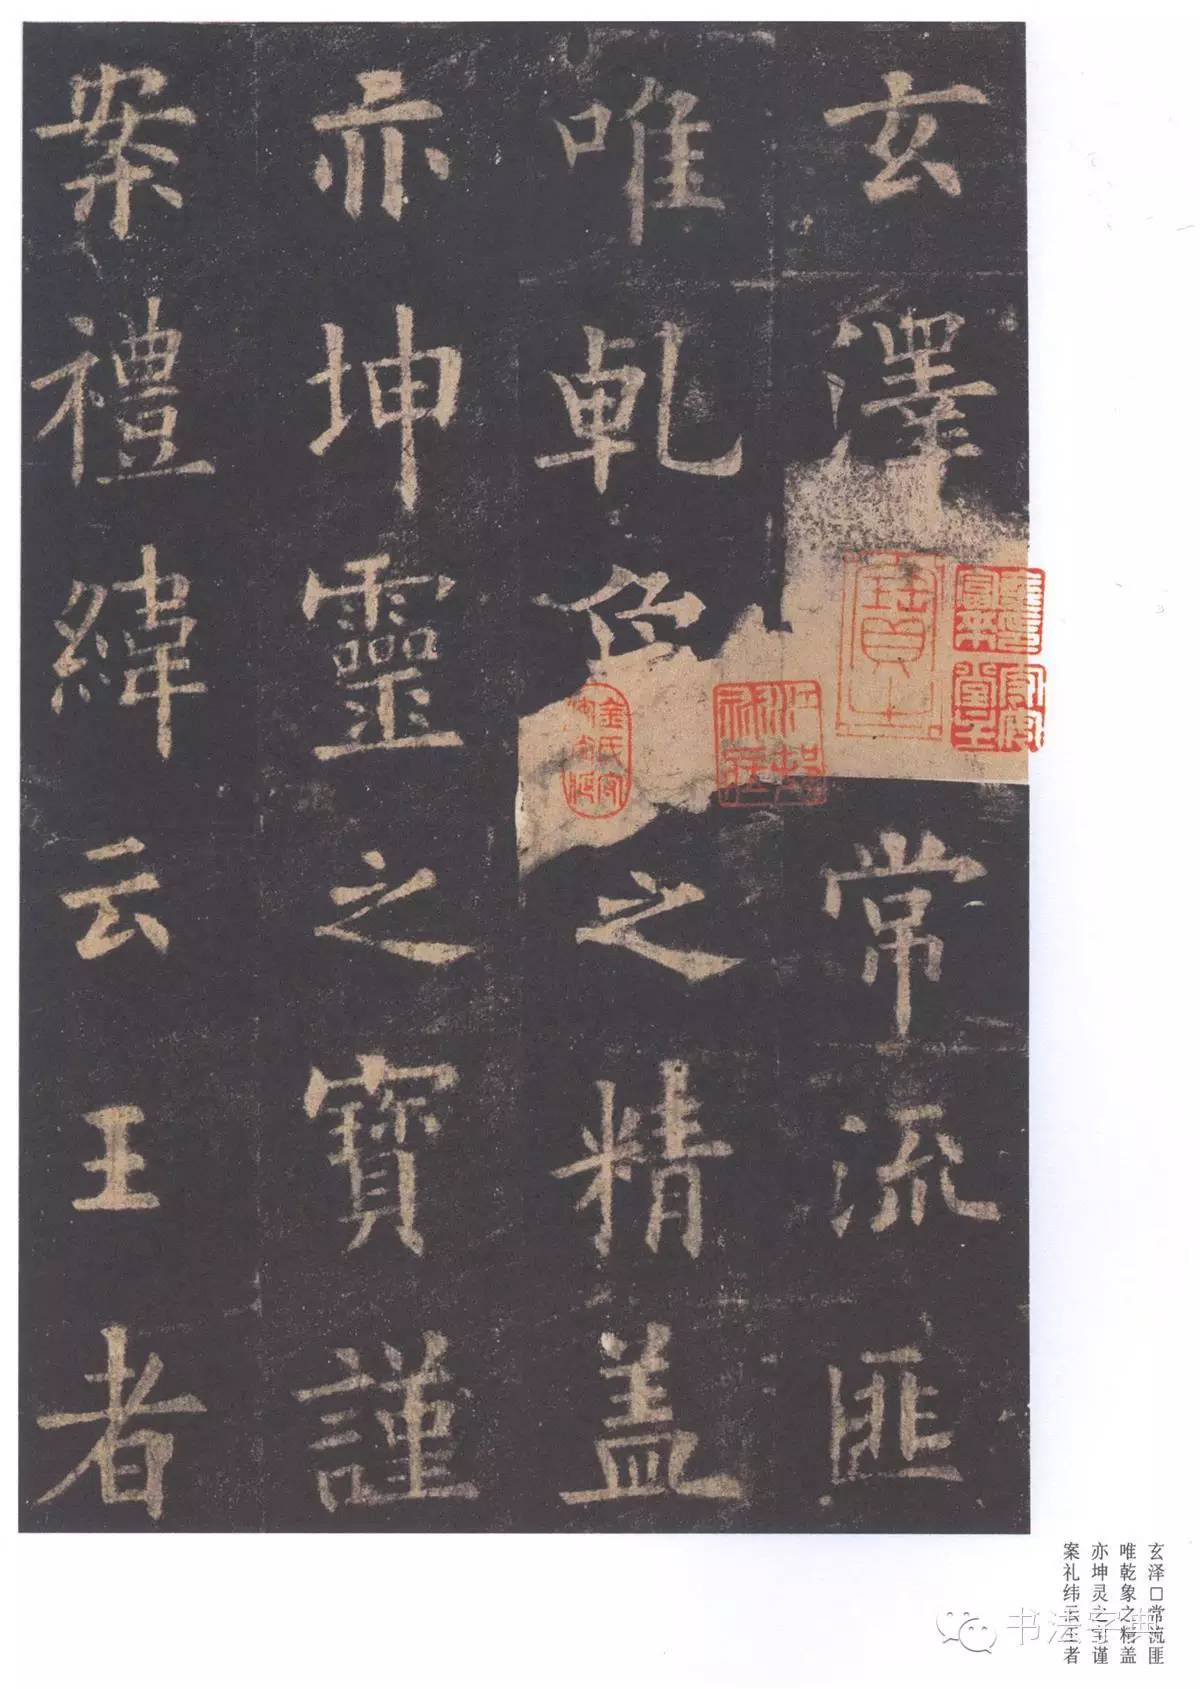 玄澤常流匪
唯乹象之精蓋
亦坤靈之寶謹
案禮緯云王者
玄泽□常流匪
唯乾象之精盖
亦坤灵之宝谨
案礼纬云王者
书法字典